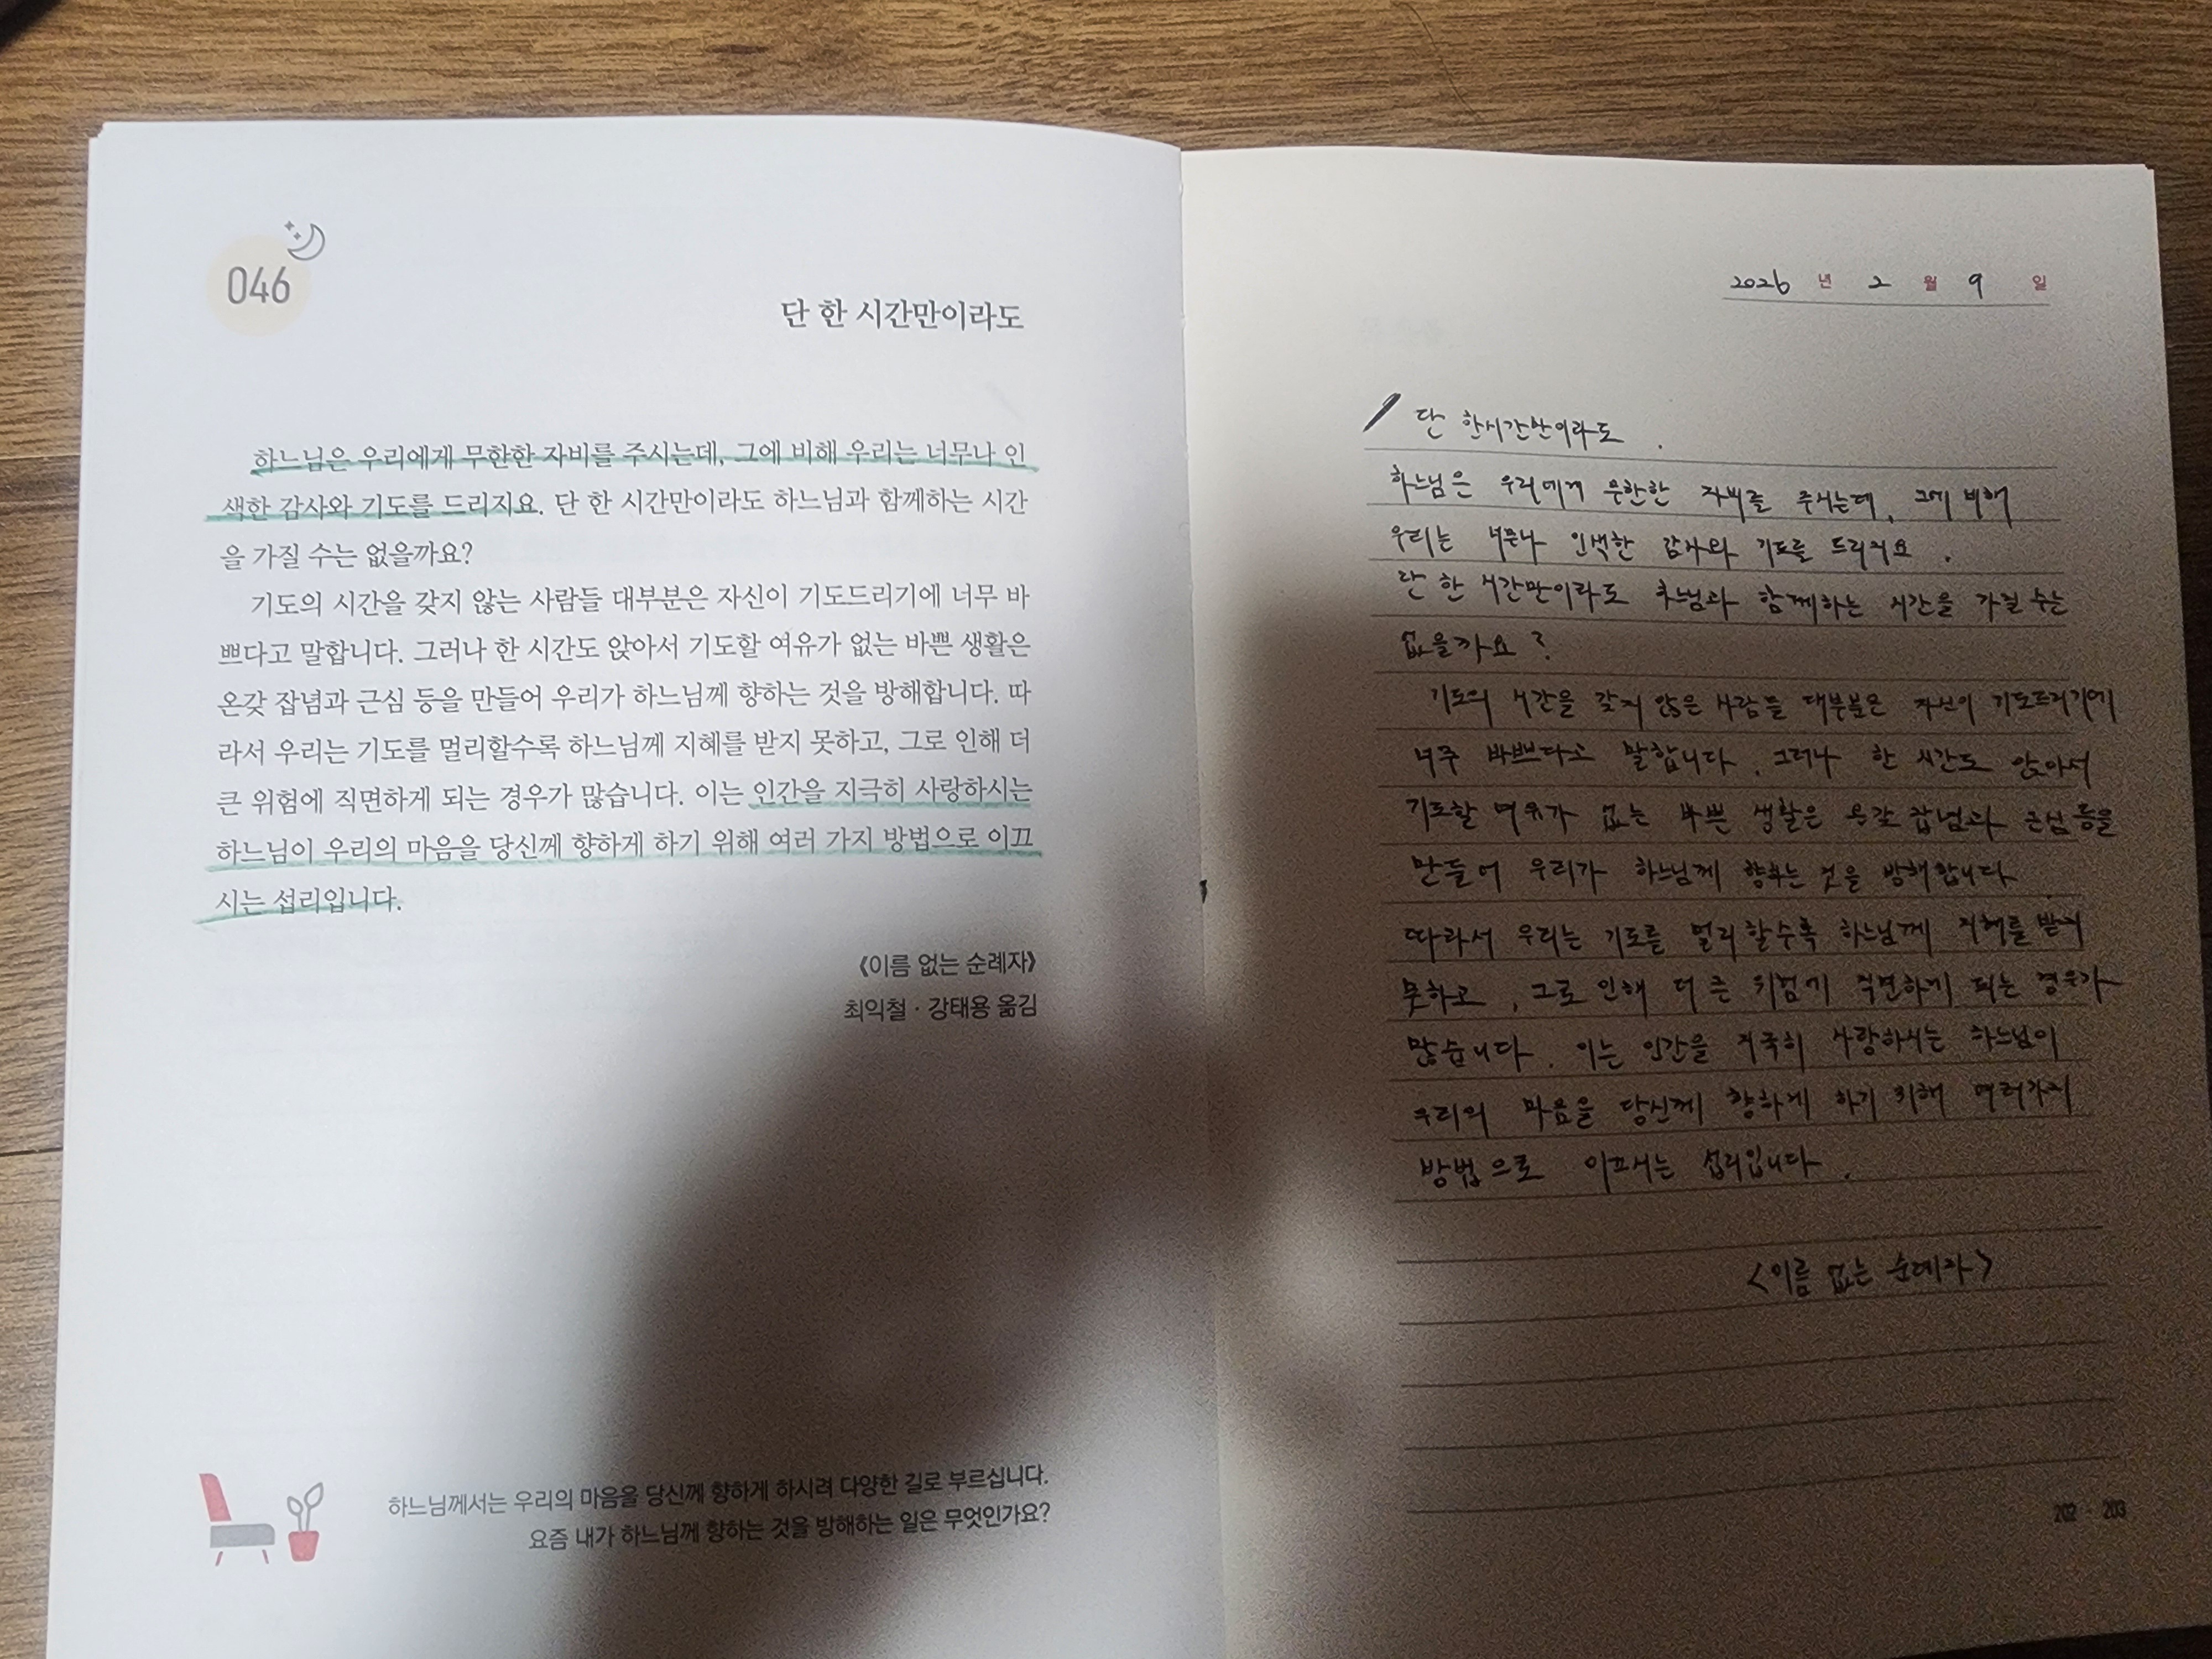 046
단 한 시간만이라도
하느님은 우리에게 무한한 자비를 주시는데, 그에 비해 우리는 너무나 인
색한 감사와 기도를 드리지요. 단 한 시간만이라도 하느님과 함께하는 시간
을 가질 수는 없을까요?
기도의 시간을 갖지 않는 사람들 대부분은 자신이 기도드리기에 너무 바
쁘다고 말합니다. 그러나 한 시간도 앉아서 기도할 여유가 없는 바쁜 생활은
온갖 잡념과 근심 등을 만들어 우리가 하느님께 향하는 것을 방해합니다. 따
라서 우리는 기도를 멀리할수록 하느님께 지혜를 받지 못하고, 그로 인해 더
큰 위험에 직면하게 되는 경우가 많습니다. 이는 인간을 지극히 사랑하시는
하느님이 우리의 마음을 당신께 향하게 하기 위해 여러 가지 방법으로 이끄
시는 섭리입니다.
《이름 없는 순례자》
최익철 · 강태용 옮김
하느님께서는 우리의 마음을 당신께 향하게 하시려 다양한 길로 부르십니다.
요즘 내가 하느님께 향하는 것을 방해하는 일은 무엇인가요?
2026 년 2 월 9 일
단 한시간만이라도.
하느님은 우리에게 무한한 자비를 주시는데, 그에 비해
우리는 너무나 인색한 감사와 기도를 드리지요.
단 한 시간만이라도 하느님과 함께하는 시간을 가질 수는
없을까요?
기도의 시간을 갖지 않은 사람들 대부분은 자신이 기도드리기에
너무 바쁘다고 말합니다. 그러나 한 시간도 앉아서
기도할 여유가 없는 바쁜 생활은 온갖 잡념과 근심 등을
만들어 우리가 하느님께 향하는 것을 방해합니다
따라서 우리는 기도를 멀리할수록 하느님께 지혜를 받지
못하고, 그로 인해 더 큰 위험에 직면하게 되는 경우가
많습니다. 이는 인간을 지극히 사랑하시는 하느님이
우리의 마음을 당신께 향하게 하기 위해 여러가지
방법으로 이끄시는 섭리입니다.
<이름 없는 순례자>
202 · 203